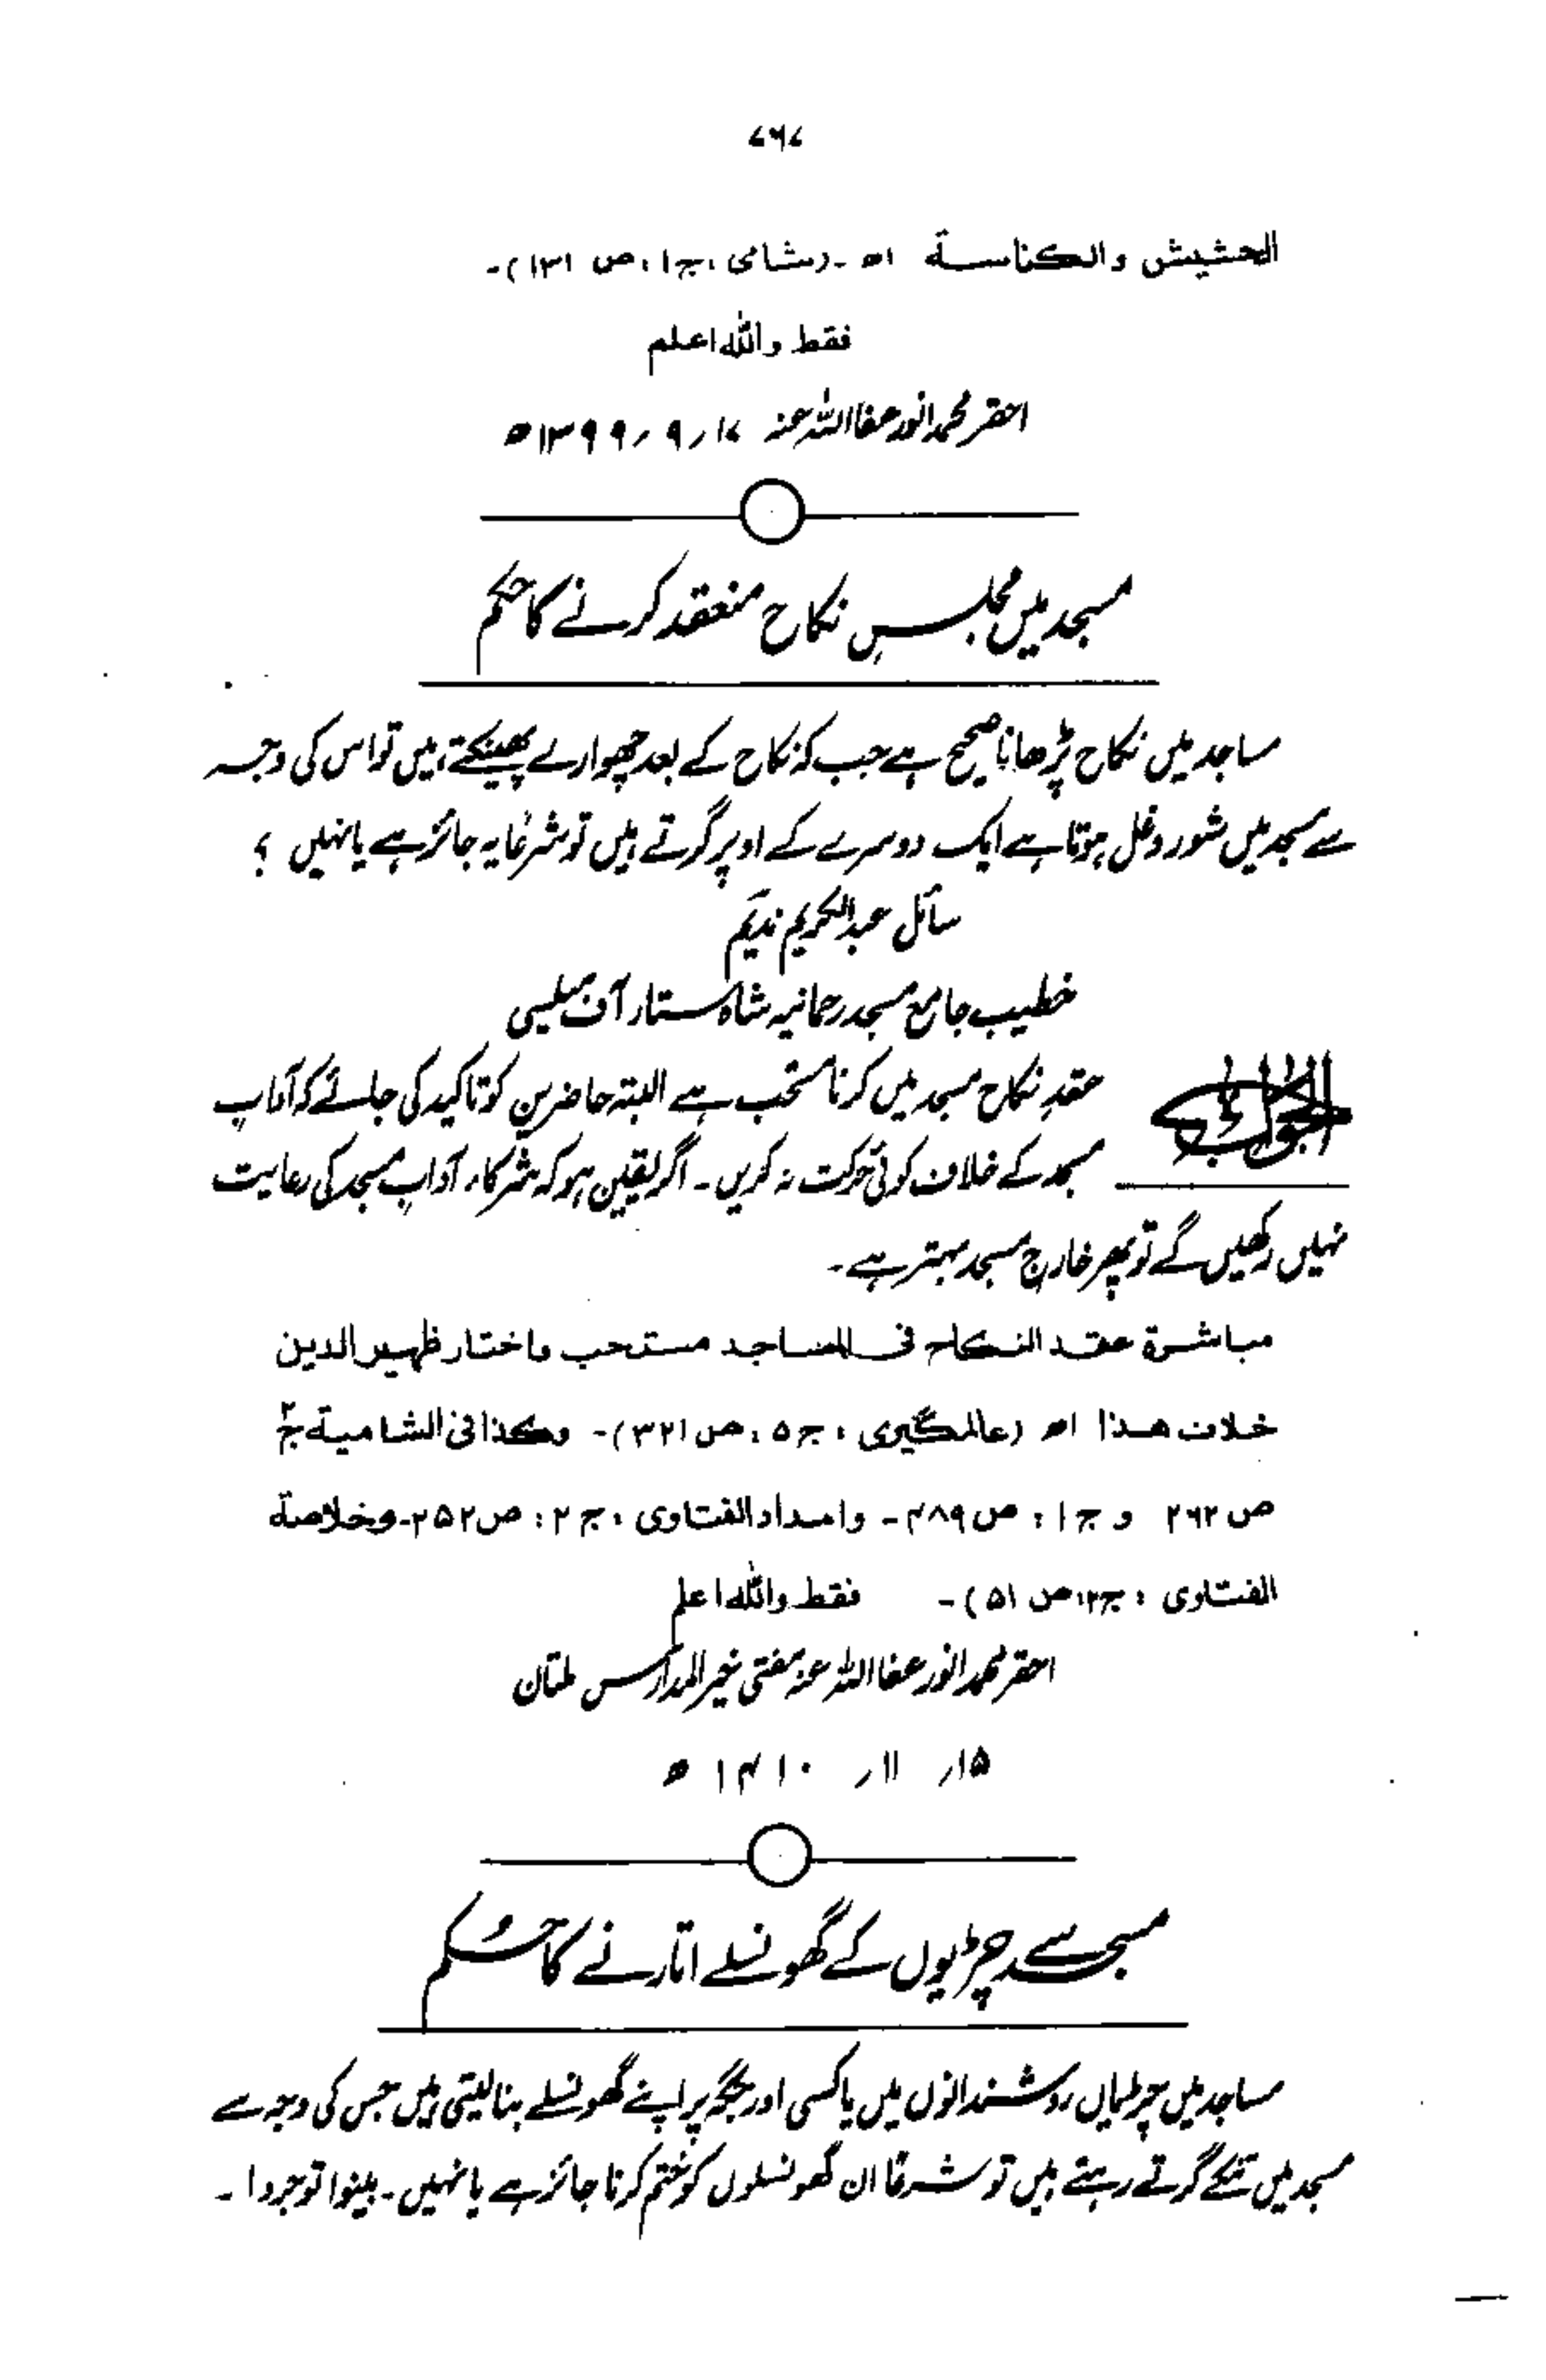 ۷۶۷
الحشیش والکناسة اھ۔ (شامی، ج۱، ص ۱۳۱)۔
فقط واللہ اعلم
احقر محمد انور عفا اللہ عنہ ۱۷؍۹؍۱۳۹۹ھ
مسجد میں مجلسِ نکاح منعقد کرنے کا حکم
مساجد میں نکاح پڑھانا صحیح ہے جب کہ نکاح کے بعد چھوارے پھینکتے ہیں تو اس کی وجہ
سے مسجد میں شور و غل ہوتا ہے ایک دوسرے کے اوپر گرتے ہیں تو شرعًا یہ جائز ہے یا نہیں ؟
سائل عبدالکریم ندیم
خطیب جامع مسجد رحمانیہ شاہ ستار آف میلسی
الجواب
عقدِ نکاح مسجد میں کرنا مستحب ہے البتہ حاضرین کو تاکید کی جائے کہ آداب
مسجد کے خلاف کوئی حرکت نہ کریں ۔ اگر یقین ہو کہ شرکاء آدابِ مسجد کی رعایت
نہیں رکھیں گے تو پھر خارج مسجد بہتر ہے ۔
مباشرة عقد النکاح فی المساجد مستحب واختار ظهیر الدین
خلاف هذا اھ (عالمگیری ؛ ج ۵ ؛ ص ۳۲۱)۔ وکذا فی الشامیة ج ۲
ص ۲۶۲ و ج ۱ ؛ ص ۴۸۹ ۔ وامداد الفتاوی ؛ ج ۲ ؛ ص ۲۵۲ ۔ وخلاصة
الفتاوی ؛ ج ۴؛ ص ۵۱)۔ فقط واللہ اعلم
احقر محمد انور عفا اللہ عنہ مفتی خیر المدارس ملتان
۱۵؍ ۱۱؍ ۱۴۱۰ ھ
مسجد سے چڑیوں کے گھونسلے اتارنے کا حکم
مساجد میں چڑیاں روشندانوں میں یا کسی اور جگہ پر اپنے گھونسلے بنا لیتی ہیں جس کی وجہ سے
مسجد میں تنکے گرتے رہتے ہیں تو شرعًا ان گھونسلوں کو ختم کرنا جائز ہے یا نہیں ۔ بینوا توجروا ۔